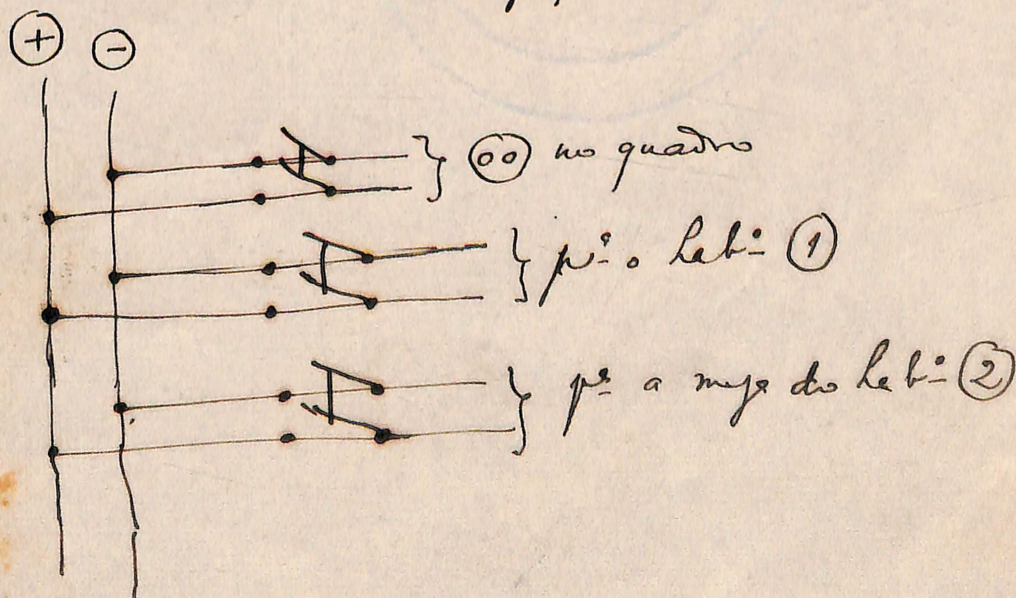 + -
oo no quadro
pª o Labº 1
pª a meza do Labº 2